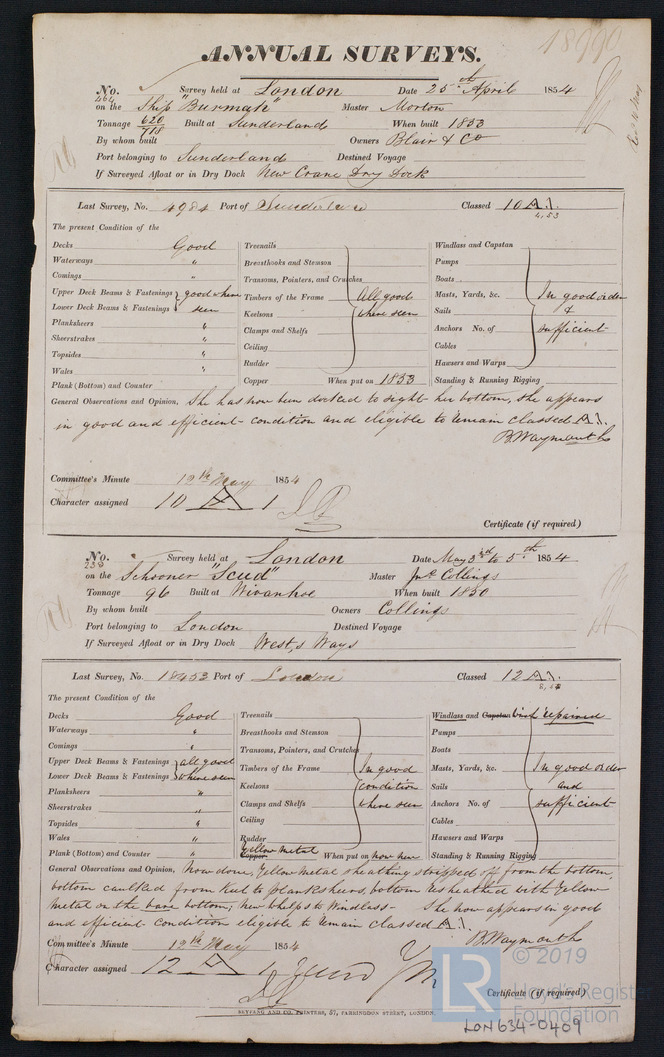 18990
ANNUAL SURVEYS.
No. 464 Survey held at London Date 25th April 1854
on the Ship "Burmah" Master Morton
Tonnage 620/718 Built at Sunderland When built 1853
By whom built Owners Blair & Co
Port belonging to Sunderland Destined Voyage
If Surveyed Afloat or in Dry Dock New Crane Dry Dock
Last Survey, No. 4984 Port of Sunderland Classed 10 A.1.
4,53
The present Condition of the
Decks Good Treenails Windlass and Capstan
Waterways " Breasthooks and Stemson Pumps
Comings " Transoms, Pointers, and Crutches Boats
Upper Deck Beams & Fastenings good where Timbers of the Frame All good Masts, Yards, &c. In good order
Lower Deck Beams & Fastenings seen Keelsons where seen Sails &
Planksheers " Clamps and Shelfs Anchors No. of sufficient
Sheerstrakes " Ceiling Cables
Topsides " Rudder Hawsers and Warps
Wales " Copper When put on 1853 Standing & Running Rigging
Plank (Bottom) and Counter
General Observations and Opinion, She has now been docked to sight her bottom, she appears
in good and efficient condition and eligible to remain classed A.1.
B Waymouth
Committee's Minute 12th May 1854
Character assigned 10 A 1
Certificate (if required)
No. 238 Survey held at London Date May 3rd to 5th 1854
on the Schooner "Scud" Master Jno. Collings
Tonnage 96 Built at Wivanhoe When built 1850
By whom built Owners Collings
Port belonging to London Destined Voyage
If Surveyed Afloat or in Dry Dock West's Ways
Last Survey, No. 18453 Port of London Classed 12 A.1.
The present Condition of the
Decks Good Treenails Windlass and Capstan repaired
Waterways " Breasthooks and Stemson Pumps
Comings " Transoms, Pointers, and Crutches Boats
Upper Deck Beams & Fastenings all good Timbers of the Frame In good Masts, Yards, &c. In good order
Lower Deck Beams & Fastenings where seen Keelsons condition Sails and
Planksheers " Clamps and Shelfs where seen Anchors No. of sufficient
Sheerstrakes " Ceiling Cables
Topsides " Rudder Hawsers and Warps
Wales " Yellow Metal
Plank (Bottom) and Counter " Copper When put on now new Standing & Running Rigging
General Observations and Opinion, Now done, Yellow Metal sheathing stripped off from the bottom,
bottom caulked from keel to plansheers, bottom resheathed with Yellow
Metal on the bare bottom; new whelps to Windlass - She now appears in good
and efficient condition eligible to remain classed A.1.
B Waymouth
Committee's Minute 12th May 1854
Character assigned 12 A 1
Certificate (if required)
SEYFANG AND CO. PRINTERS, 57, FARRINGDON STREET, LONDON.
LR © 2019
Lloyd's Register
Foundation
LON634-0409